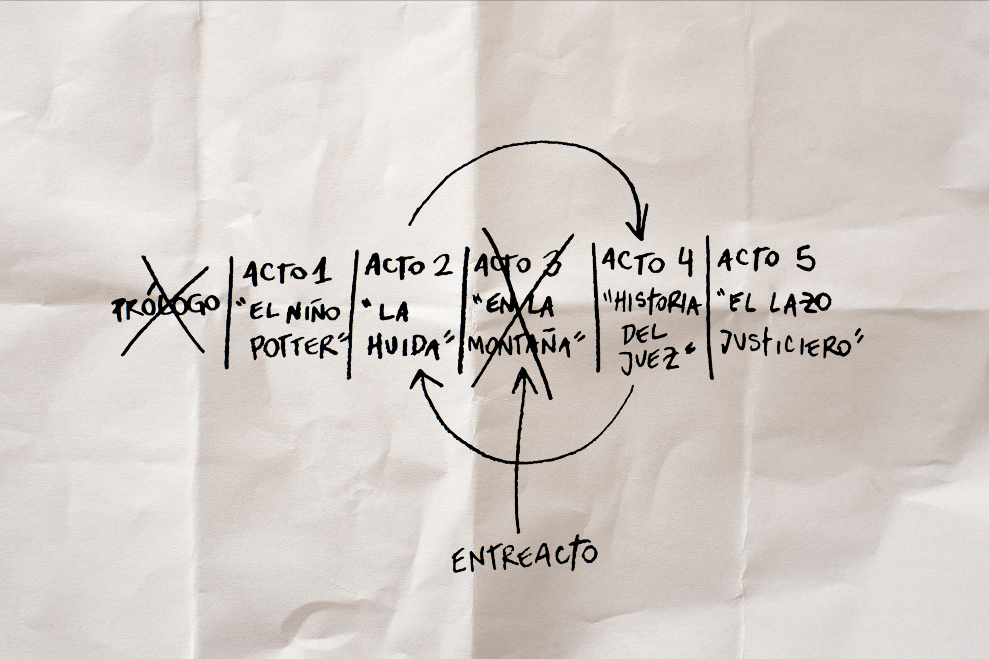 PRÓLOGO
ACTO 1
"EL NIÑO
POTTER"
ACTO 2
"LA
HUIDA"
ACTO 3
"EN LA
MONTAÑA"
ACTO 4
"HISTORIA
DEL
JUEZ"
ACTO 5
"EL LAZO
JUSTICIERO"
ENTREACTO